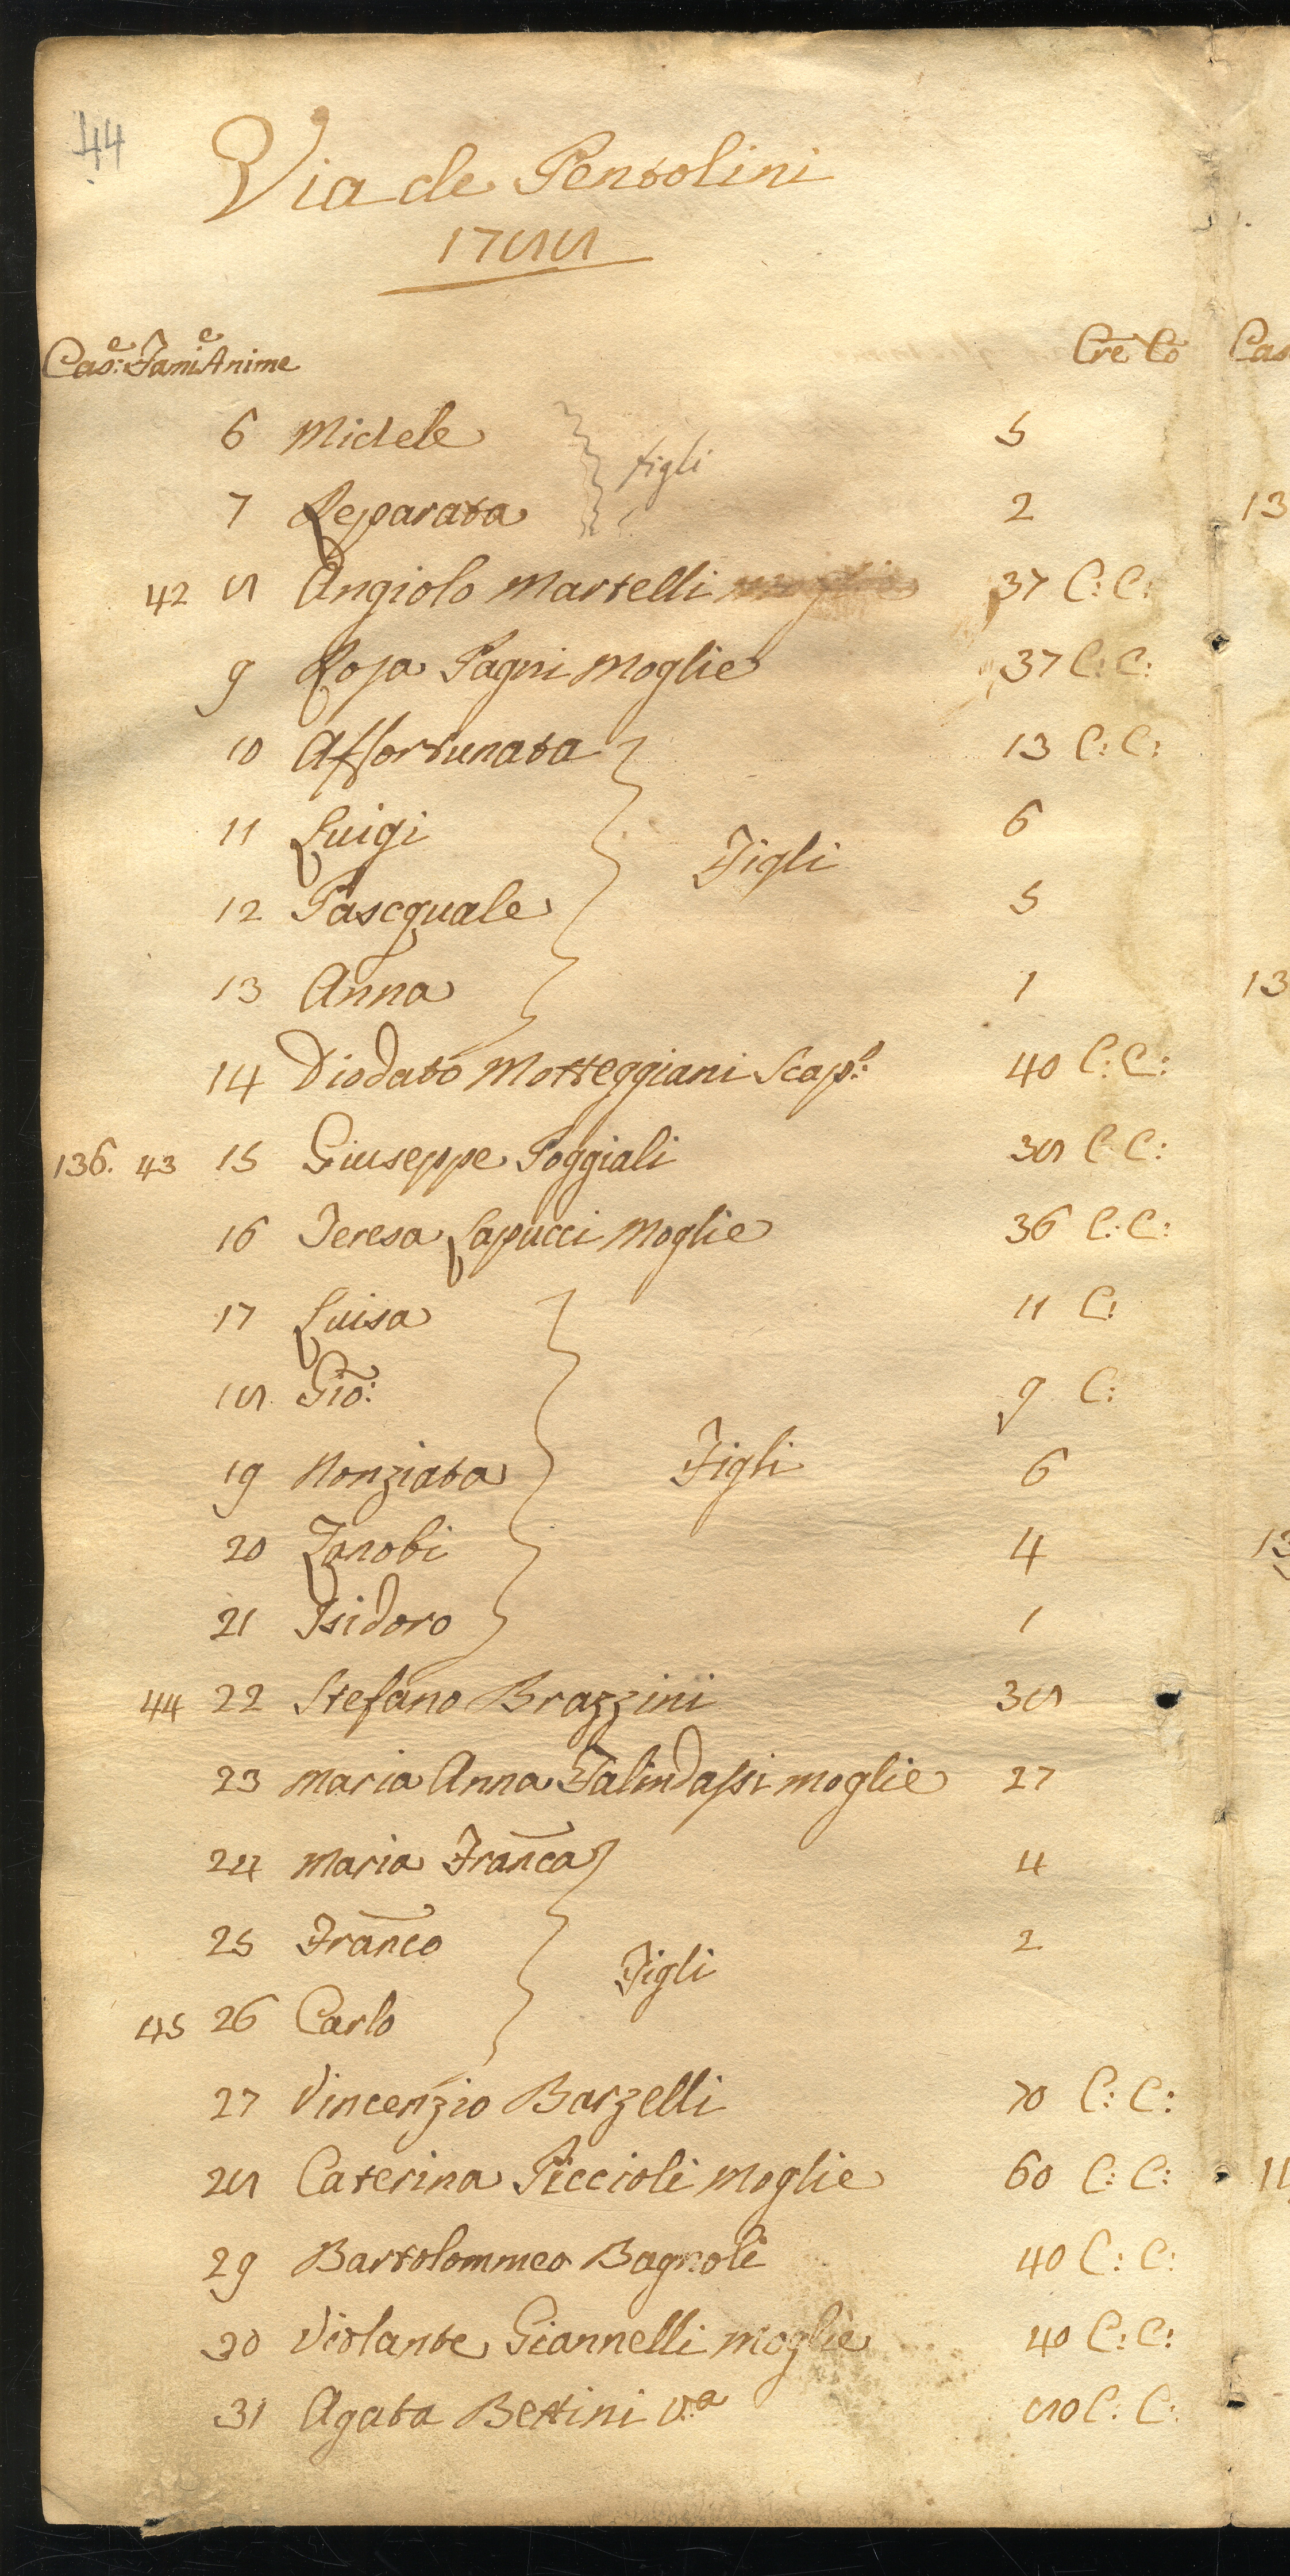 44
Via de Pentolini
1788
Cas:e Fami:e Anime Cre Co Cas
6 Michele 5
figli
7 Reparata 2 13
42 8 Angiolo Martelli 37 C: C:
9 Rosa Pagni Moglie 37 C: C:
10 Affortunata 13 C: C:
11 Luigi 6
Figli
12 Pascquale 5
13 Anna 1 13
14 Diodato Motteggiani Scap:o 40 C: C:
136. 43 15 Giuseppe Poggiali 38 C: C:
16 Teresa Lapucci Moglie 36 C: C:
17 Luisa 11 C:
18 Gio: 9 C:
19 Nonziata Figli 6
20 Zanobi 4 13
21 Isidoro 1
44 22 Stefano Brazzini 38
23 Maria Anna Falindassi moglie 27
24 Maria Franca 4
25 Franco 2
Figli
45 26 Carlo
27 Vincenzio Barzelli 70 C: C:
28 Caterina Piccioli Moglie 60 C: C:
29 Bartolommeo Bagnoli 40 C: C:
30 Violante Giannelli Moglie 40 C: C:
31 Agata Bettini V:a 80 C: C: